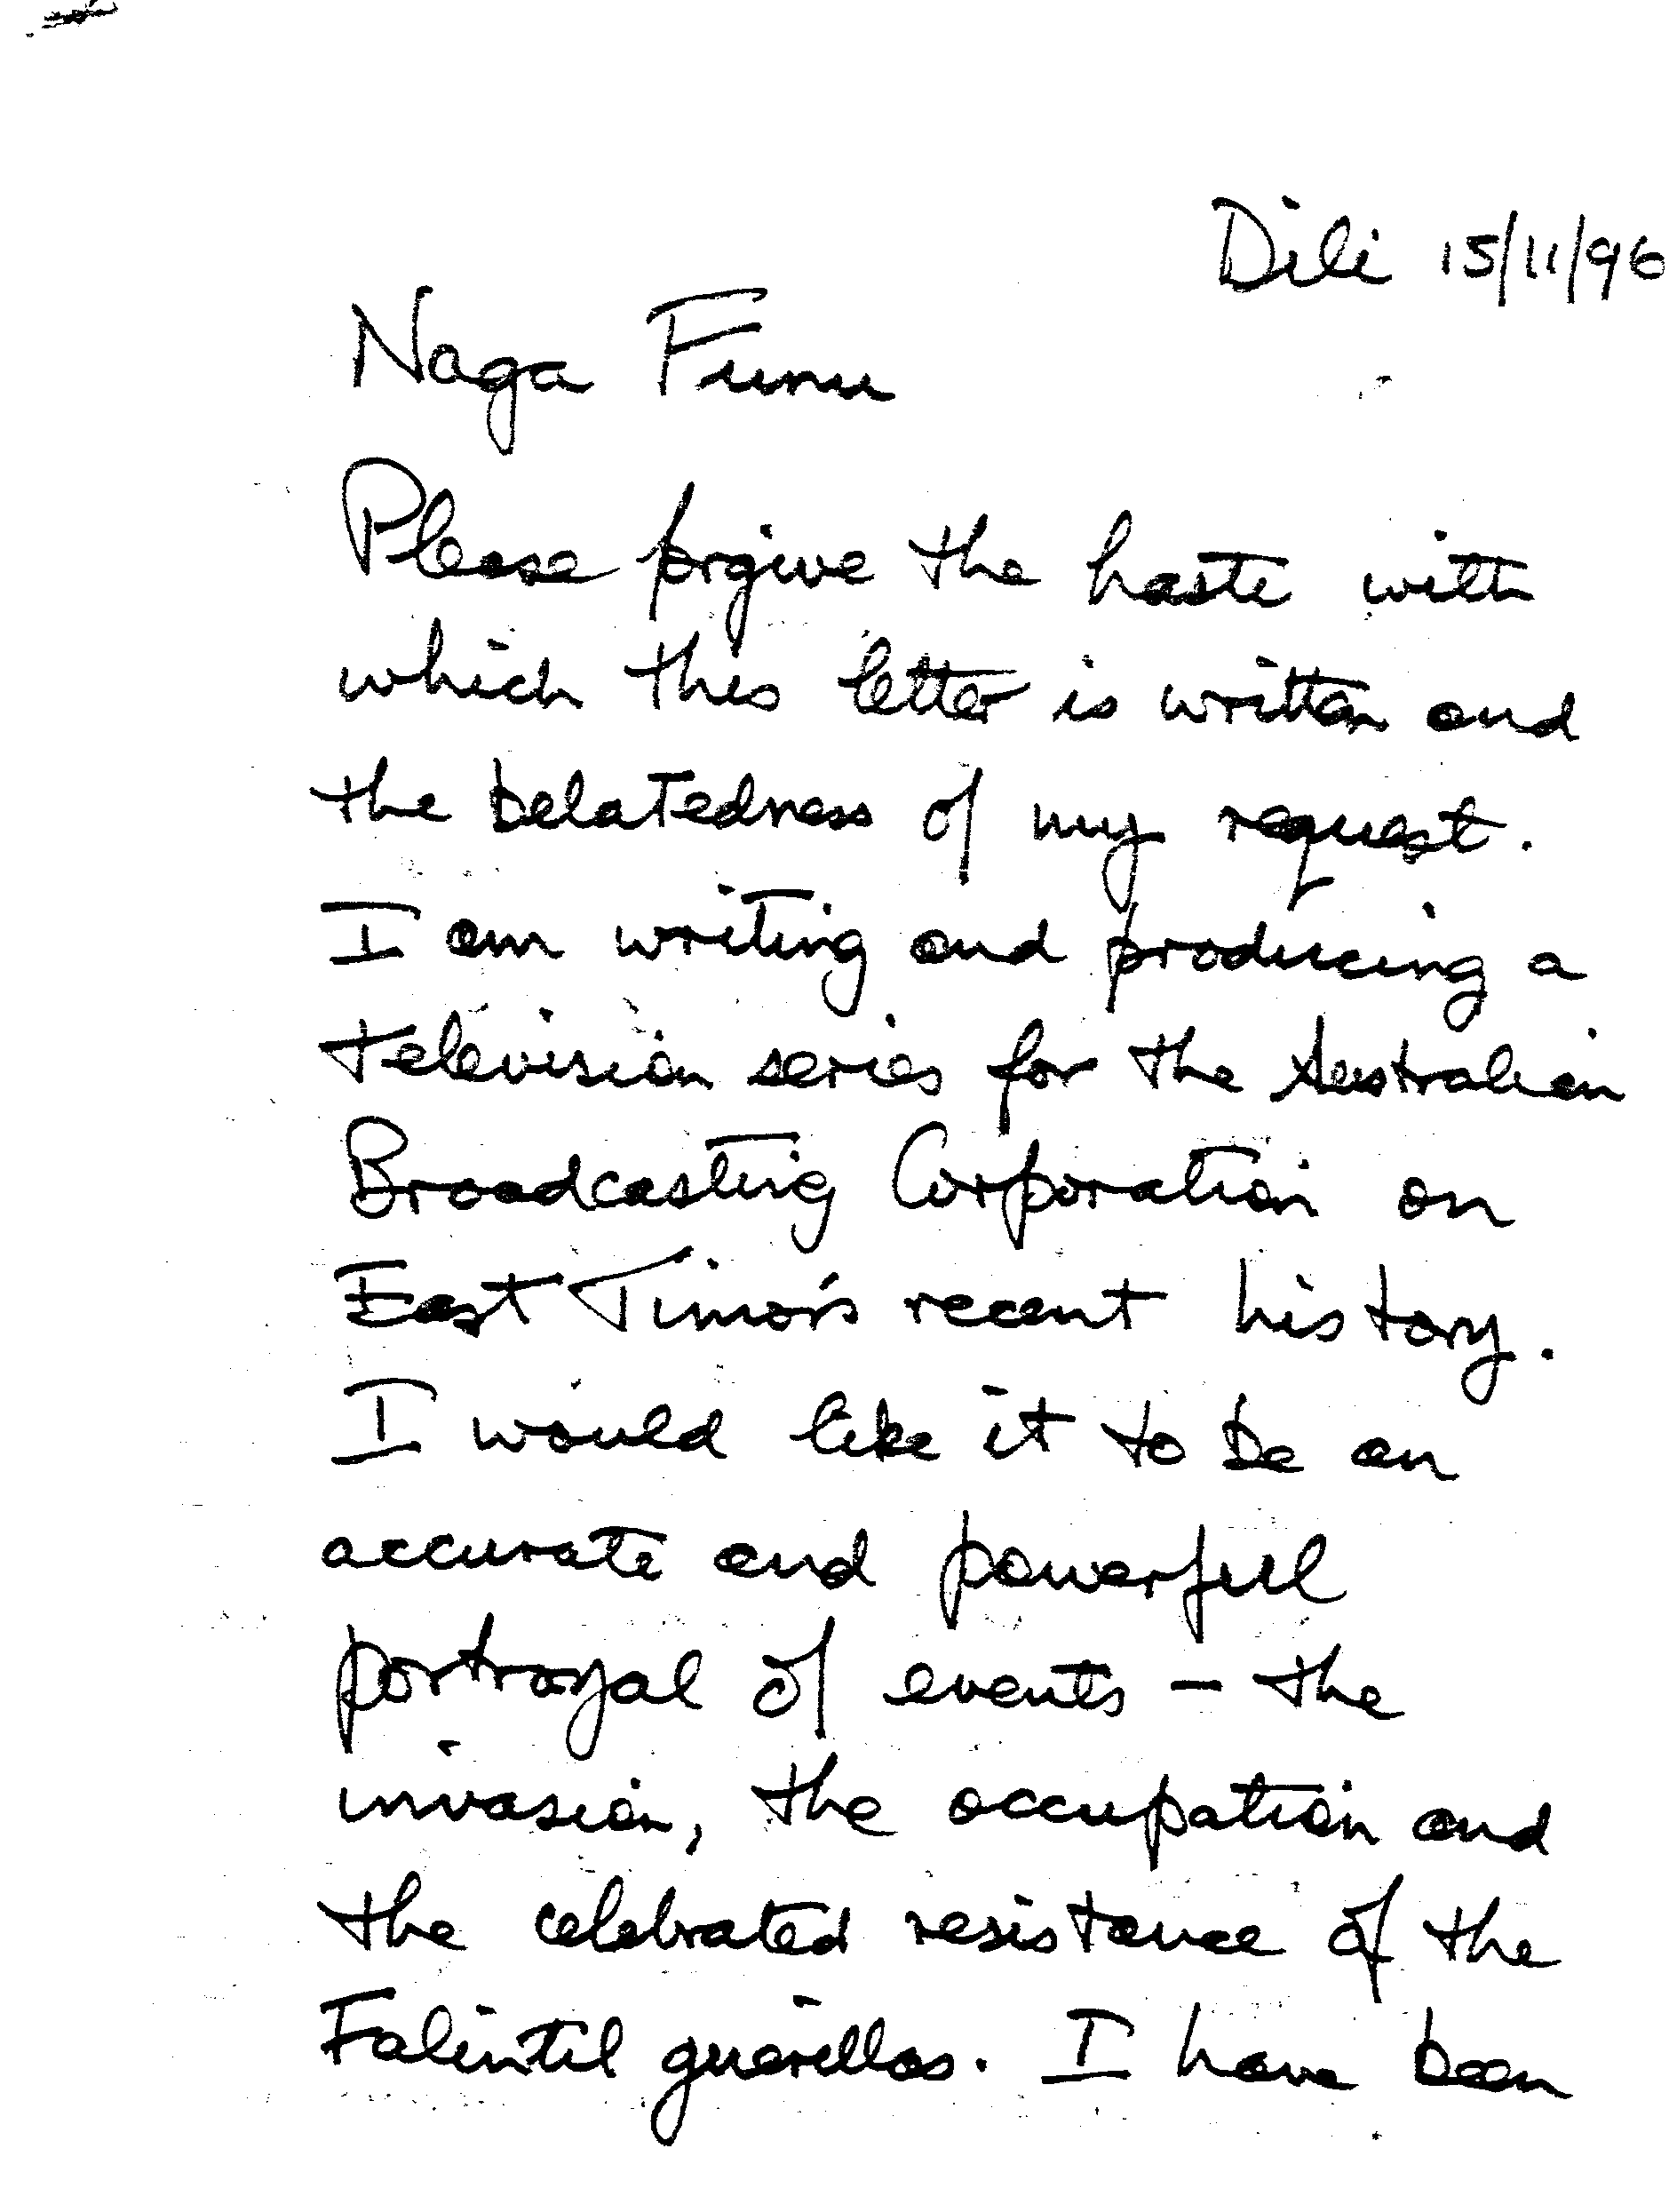 Dili 15/11/96
Naga Funu
Please forgive the haste with
which this letter is written and
the belatedness of my request.
I am writing and producing a
television series for the Australian
Broadcasting Corporation on
East Timor's recent history.
I would like it to be an
accurate and powerful
portrayal of events - the
invasion, the occupation and
the celebrated resistance of the
Falintil guerillas. I have been